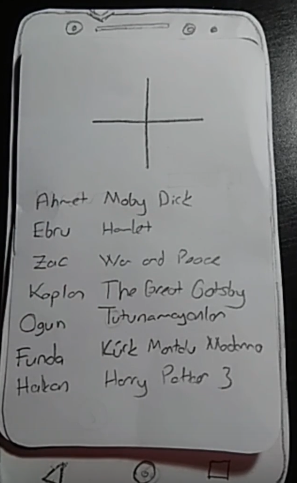 Ahmet Moby Dick
Ebru Hamlet
Zac War and Peace
Kaplan The Great Gatsby
Ogun Tutunamayanlar
Funda Kürk Mantolu Madonna
Hakan Harry Potter 3